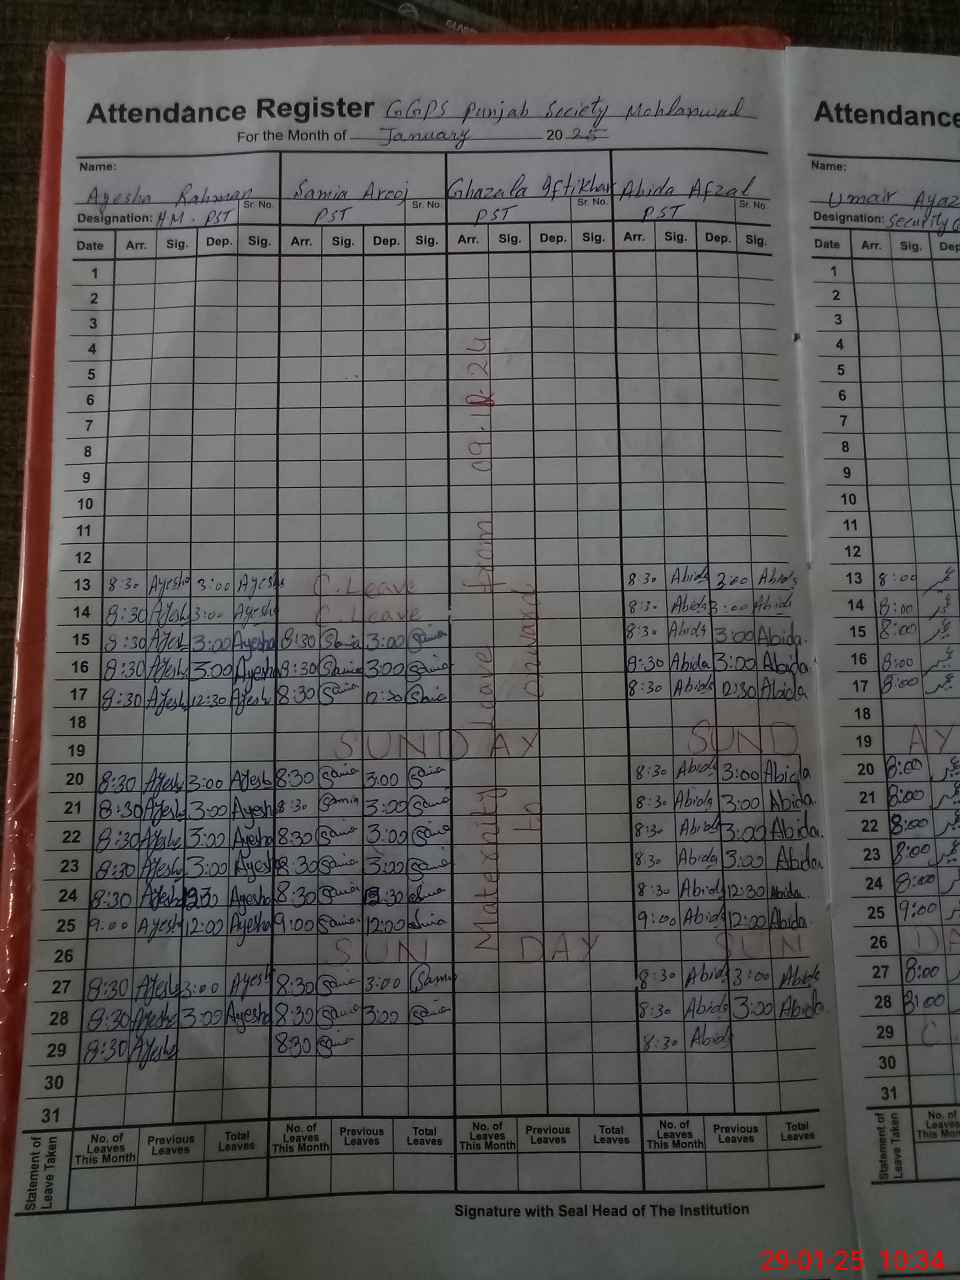 Attendance Register GGPS Punjab Society Mohlanwal
Attendance
For the Month of January 2025
Name:
Ayesha Rahman Samia Arooj Ghazala Iftikhar Abida Afzal
Name:
Umair Ayaz
Sr. No. Sr. No. Sr. No. Sr. No.
Designation: H.M. PST PST PST PST
Designation: Security
Date Arr. Sig. Dep. Sig. Arr. Sig. Dep. Sig. Arr. Sig. Dep. Sig. Arr. Sig. Dep. Sig.
Date Arr. Sig. Dep
1 1
2 2
3 3
4 4
5 5
6 6
7 7
8 8
9 9
10 10
11 11
12 12
13 8:30 Ayesha 3:00 Ayesha C.Leave 8:30 Abida 3:00 Abida 13 8:00
14 8:30 Ayesha 3:00 Ayesha C.Leave 8:30 Abida 3:00 Abida 14 8:00
15 8:30 Ayesha 3:00 Ayesha 8:30 Samia 3:00 Samia 8:30 Abida 3:00 Abida 15 8:00
16 8:30 Ayesha 3:00 Ayesha 8:30 Samia 3:00 Samia 8:30 Abida 3:00 Abida 16 8:00
17 8:30 Ayesha 12:30 Ayesha 8:30 Samia 12:30 Samia 8:30 Abida 12:30 Abida 17 8:00
18 18
19 SUNDAY SUND 19 AY
20 8:30 Ayesha 3:00 Ayesha 8:30 Samia 3:00 Samia 8:30 Abida 3:00 Abida 20 8:00
21 8:30 Ayesha 3:00 Ayesha 8:30 Samia 3:00 Samia 8:30 Abida 3:00 Abida 21 8:00
22 8:30 Ayesha 3:00 Ayesha 8:30 Samia 3:00 Samia 8:30 Abida 3:00 Abida 22 8:00
23 8:30 Ayesha 3:00 Ayesha 8:30 Samia 3:00 Samia 8:30 Abida 3:00 Abida 23 8:00
24 8:30 Ayesha Ayesha 8:30 Samia Samia 8:30 Abida 12:30 Abida 24 8:00
25 9:00 Ayesha 12:00 Ayesha 9:00 Samia 12:00 Samia 9:00 Abida 12:00 Abida 25 9:00
26 SUN DAY SUN 26 DA
27 8:30 Ayesha 3:00 Ayesha 8:30 Samia 3:00 Samia 8:30 Abida 3:00 Abida 27 8:00
28 8:30 Ayesha 3:00 Ayesha 8:30 Samia 3:00 Samia 8:30 Abida 3:00 Abida 28 8:00
29 8:30 Ayesha 8:30 Samia 8:30 Abida 29 C
30 30
31 31
Maternity Leave from 09.12.24
to onward
Statement of Leave Taken
No. of Leaves This Month Previous Leaves Total Leaves No. of Leaves This Month Previous Leaves Total Leaves No. of Leaves This Month Previous Leaves Total Leaves No. of Leaves This Month Previous Leaves Total Leaves
Statement of Leave Taken
No. of Leaves This Mon
Signature with Seal Head of The Institution
29-01-25 10:34